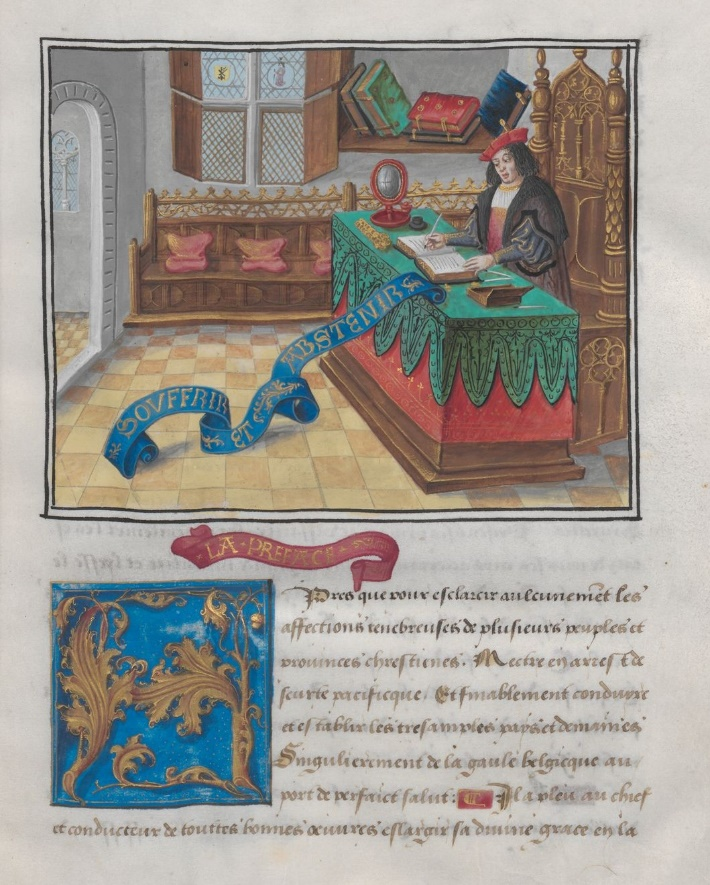 SOVFFRIR
ET
ABSTENIR
LA PREFACE
Apres que pour esclarcir aulcunemẽt les
affections tenebreuses de plusieurs peuples et
prouinces chrestienes. Mectre en arrest de
seurte pacificque. Et finablement conduyre
et establir les tresamples pays et demaines
Singulierement de la gaule belgicque au
port de perfaict salut. Il a pleu au chief
et conducteur de touttes bonnes œuures eslargir sa diuine grace en la